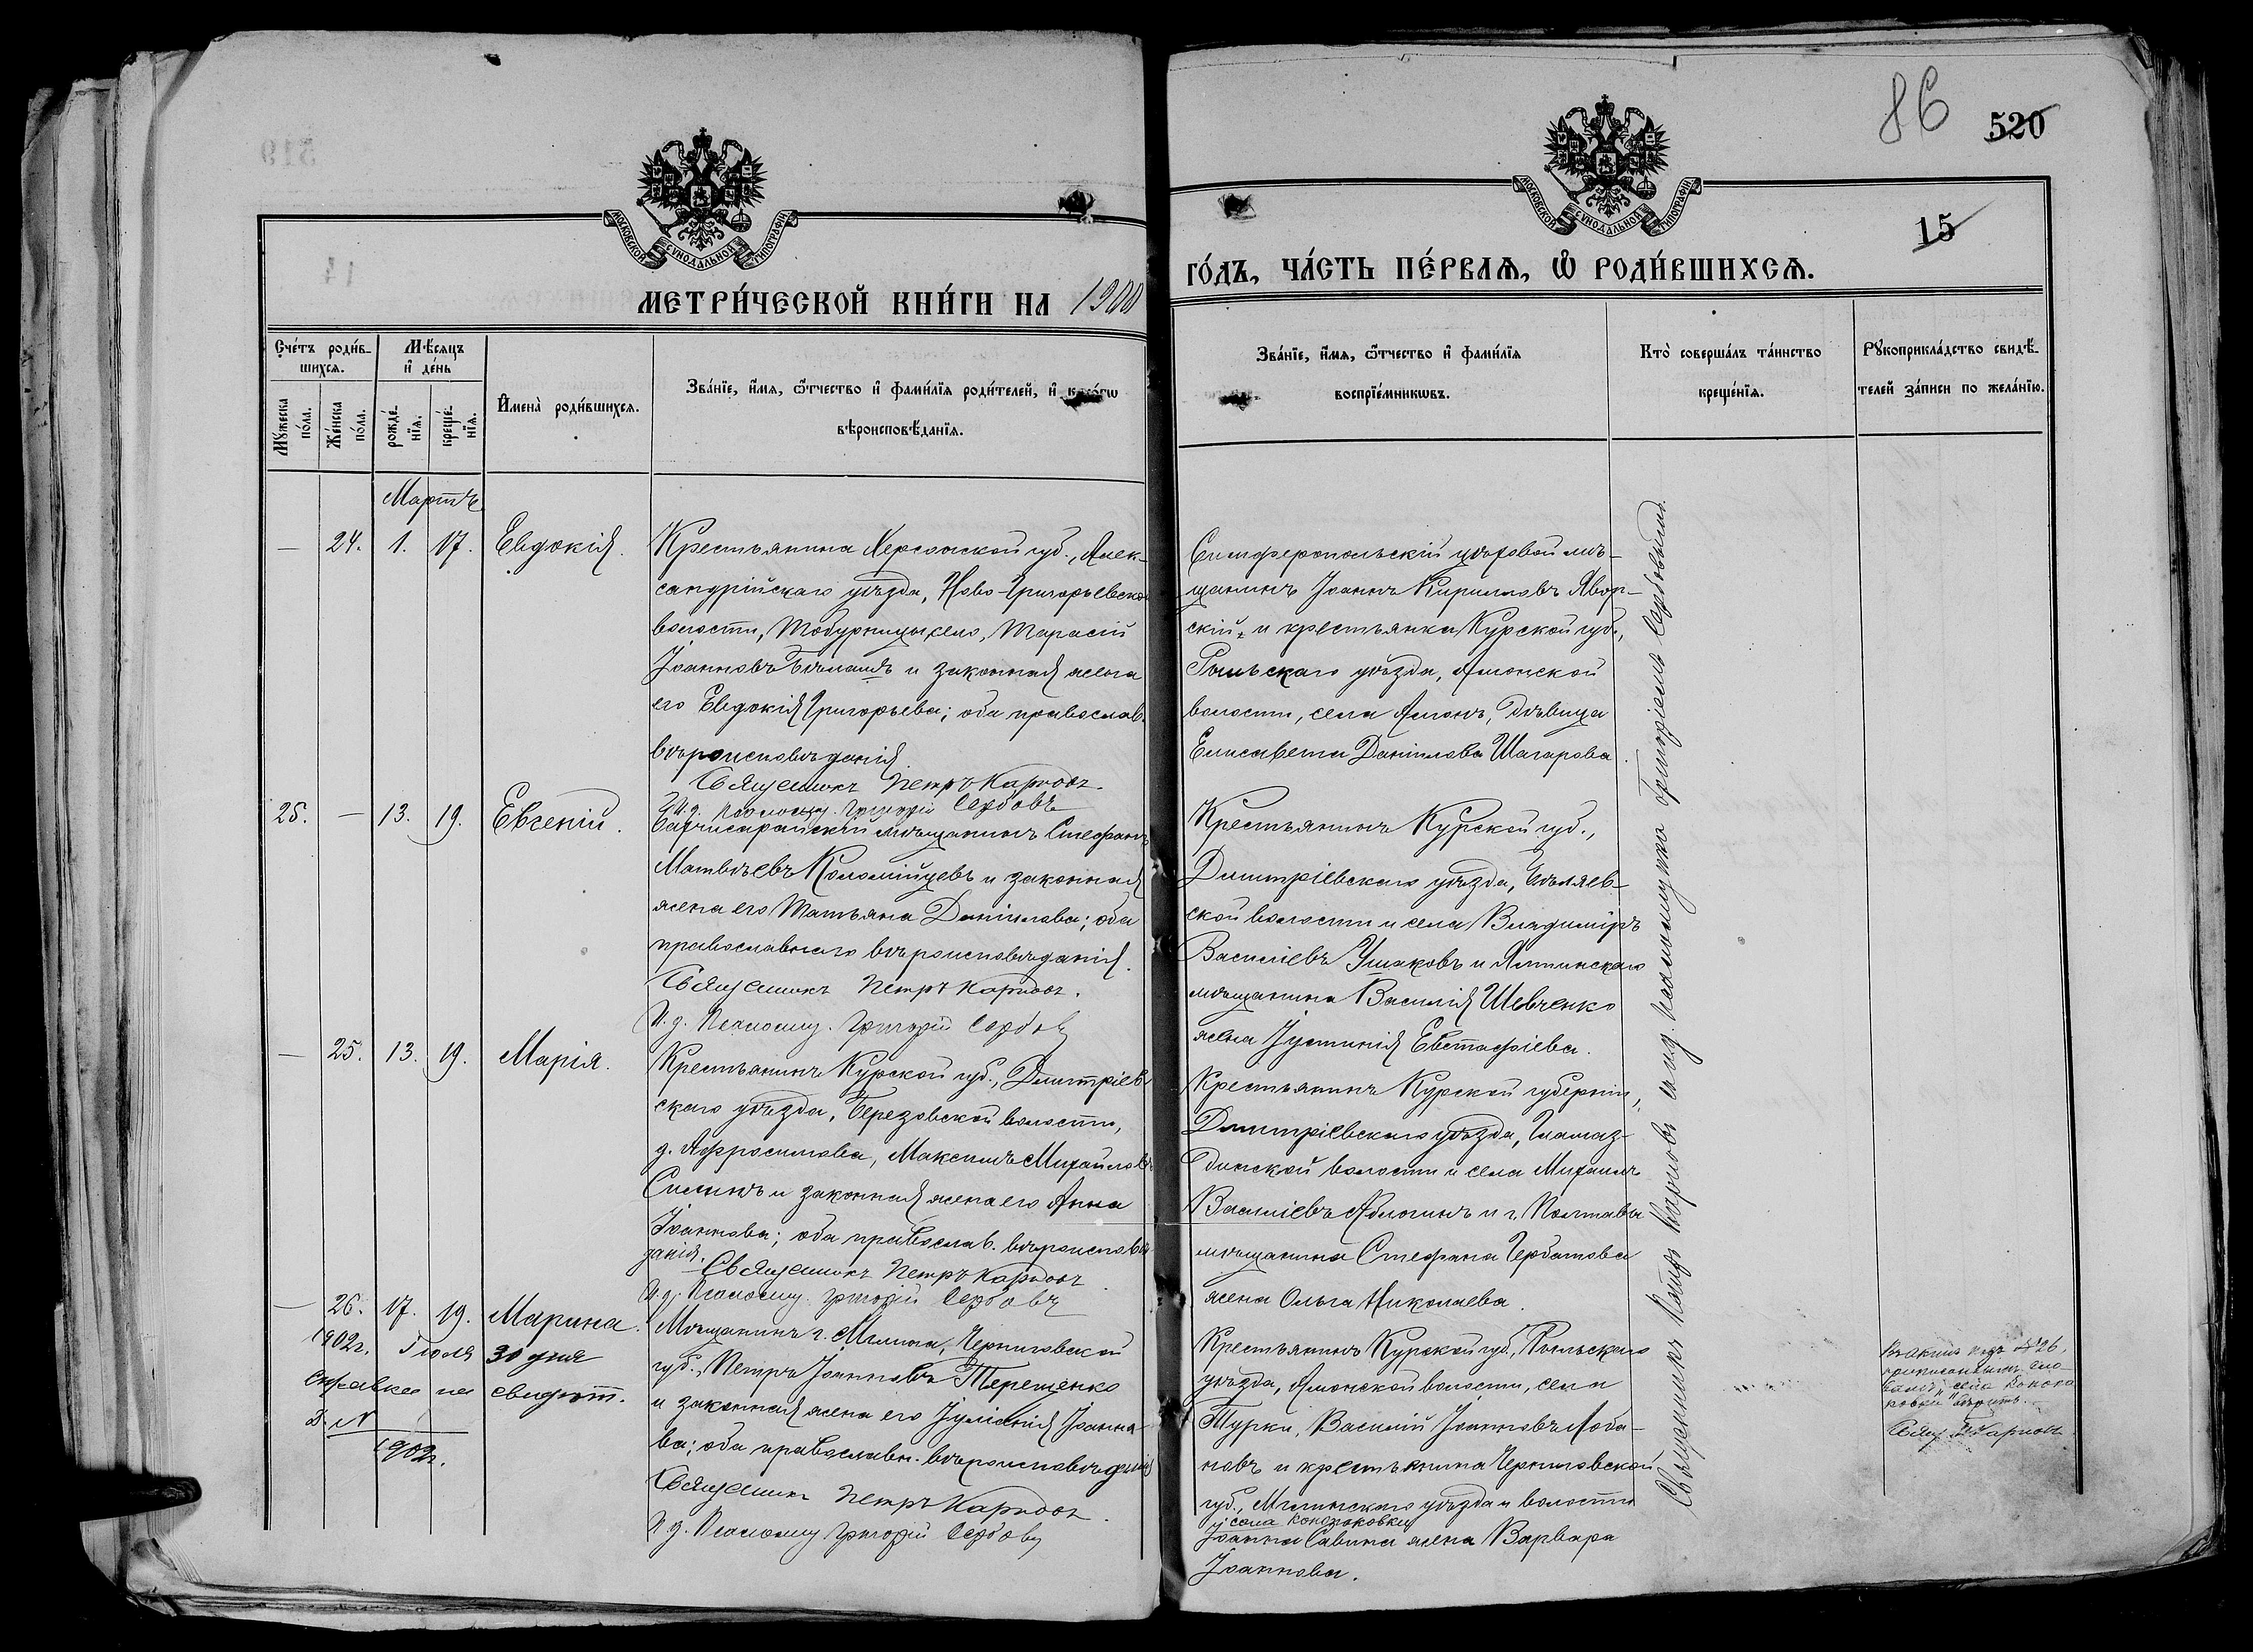 86
520
15
МОСКОВСКОЙ СѴНОДАЛЬНОЙ ТИПОГРАФІИ
МОСКОВСКОЙ СѴНОДАЛЬНОЙ ТИПОГРАФІИ
МЕТРИ́ЧЕСКОЙ КНИ́ГИ НА 1900
ГО́ДЪ, ЧА́СТЬ ПЕ́РВАѦ, Ѡ҆ РОДИ́ВШИХСѦ.
Сче́тъ роди́в-
шихсѧ.
Мꙋжеска по́ла.
Же́нска по́ла.
Мѣ́сѧцъ
и҆ де́нь
рожде́-
нїѧ.
креще́-
нїѧ.
И҆мена̀ роди́вшихсѧ.
Зва́нїе, и҆́мѧ, ѻ҆́тчество и҆ фами́лїѧ роди́телей, и҆ како́гѡ
вѣроисповѣ́данїѧ.
Зва́нїе, и҆́мѧ, ѻ҆́тчество и҆ фами́лїѧ
воспрїе́мникѡвъ.
Кто̀ соверша́лъ та́инство
креще́нїѧ.
Рꙋкоприкла́дство свидѣ́-
телей за́писи по жела́нїю.
Мартъ
— 24. 1. 17. Евдокія.
Крестьянина Херсонской губ., Алек-
сандрійскаго уѣзда, Ново-Григорьевской
волости, села, Тарасій
Іоанновъ и законная жена
его Евдокія Григорьева; оба православ.
вѣроисповѣданія.
Священникъ Петръ Карповъ.
И. д. псаломщ. Григорій Сербовъ
Симферопольскій цеховой мѣ-
щанинъ Іоаннъ Кирилловъ Явор-
скій и крестьянка Курской губ.,
Рыльскаго уѣзда, Амонской
волости, села Амонь, дѣвица
Елисавета Даніилова Шагарова.
25. — 13. 19. Евгеній.
Бахчисарайскій мѣщанинъ Стефанъ
Матвѣевъ Коломійцевъ и законная
жена его Татьяна Даніилова; оба
православнаго вѣроисповѣданія.
Священникъ Петръ Карповъ.
И. д. Псаломщ. Григорій Сербовъ
Крестьянинъ Курской губ.,
Димитріевскаго уѣзда, Бѣляев-
ской волости и села Владиміръ
Василіевъ Ушаковъ и Ялтинскаго
мѣщанина Василія Шевченко
жена Іустинія Евстафіева.
— 25. 13. 19. Марія.
Крестьянинъ Курской губ., Димитріев-
скаго уѣзда, Березовской волости,
д. Афросимова, Максимъ Михайловъ
Силинъ и законная жена его Анна
Іоаннова; оба православ. вѣроисповѣ-
данія.
Священникъ Петръ Карповъ
И. д. Псаломщ. Григорій Сербовъ
Крестьянинъ Курской губерніи,
Димитріевскаго уѣзда, Гламаз-
динской волости и села Михаилъ
Василіевъ и г. Полтавы
мѣщанина Стефана Гербатова
жена Ольга Николаева.
— 26. 17. 19. Марина.
1902 г. Іюля 30 дня
справка на свидѣт.
Д. N
1902 г.
Мѣщанинъ г. Мглина, Черниговской
губ., Петръ Іоанновъ Терещенко
и законная жена его Іуліанія Іоанно-
ва; оба православн. вѣроисповѣданія
Священникъ Петръ Карповъ.
И. д. Псаломщ Григорій Сербовъ
Крестьянинъ Курской губ., Рыльскаго
уѣзда, Амонской волости, села
Турки, Василій Іоанновъ Лоба-
новъ и крестьянина Черниговской
губ., Мглинскаго уѣзда и волости
и села
Іоанна Савина жена Варвара
Іоаннова.
Священникъ Петръ Карповъ съ и. д. псаломщика Григоріемъ Сербовымъ.
Въ актѣ подъ № 26,
села
Свящ. П. Карповъ